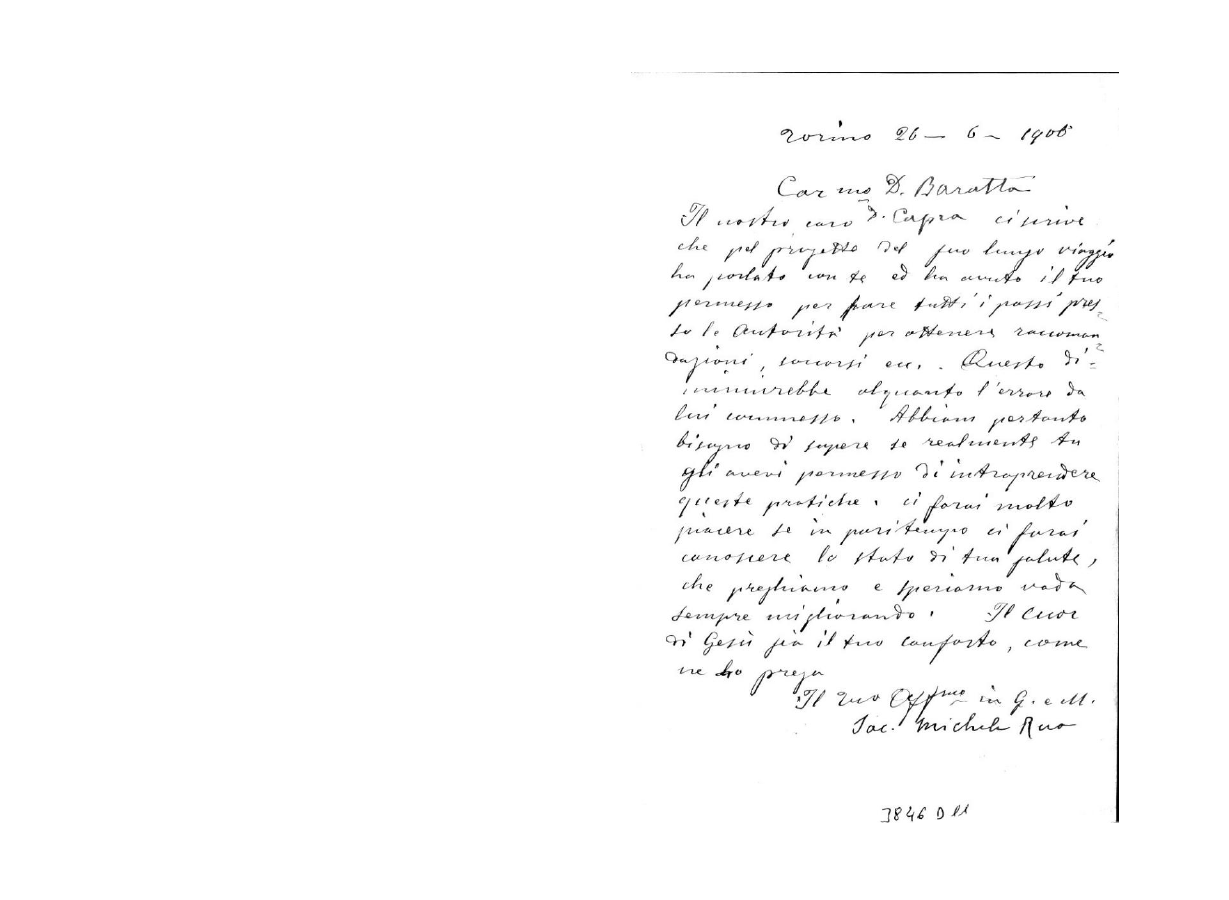 Torino 26 – 6 – 1906
Car mo D. Baratta
Il nostro caro D. Capra ci scrive
che pel progetto del suo lungo viaggio
ha parlato con te ed ha avuto il tuo
permesso per fare tutti i passi pres-
so le Autorità per ottenere raccoman-
dazioni, soccorsi ecc. . Questo di-
minuirebbe alquanto l'errore da
lui commesso. Abbiam pertanto
bisogno di sapere se realmente tu
gli avevi permesso di intraprendere
queste pratiche. ci farai molto
piacere se in pari tempo ci farai
conoscere lo stato di tua salute,
che preghiamo e speriamo vada
sempre migliorando. Il Cuor
di Gesù sia il tuo conforto, come
ne lo prega
Il tuo Aff.mo in G. e M.
Sac. Michele Rua
3846